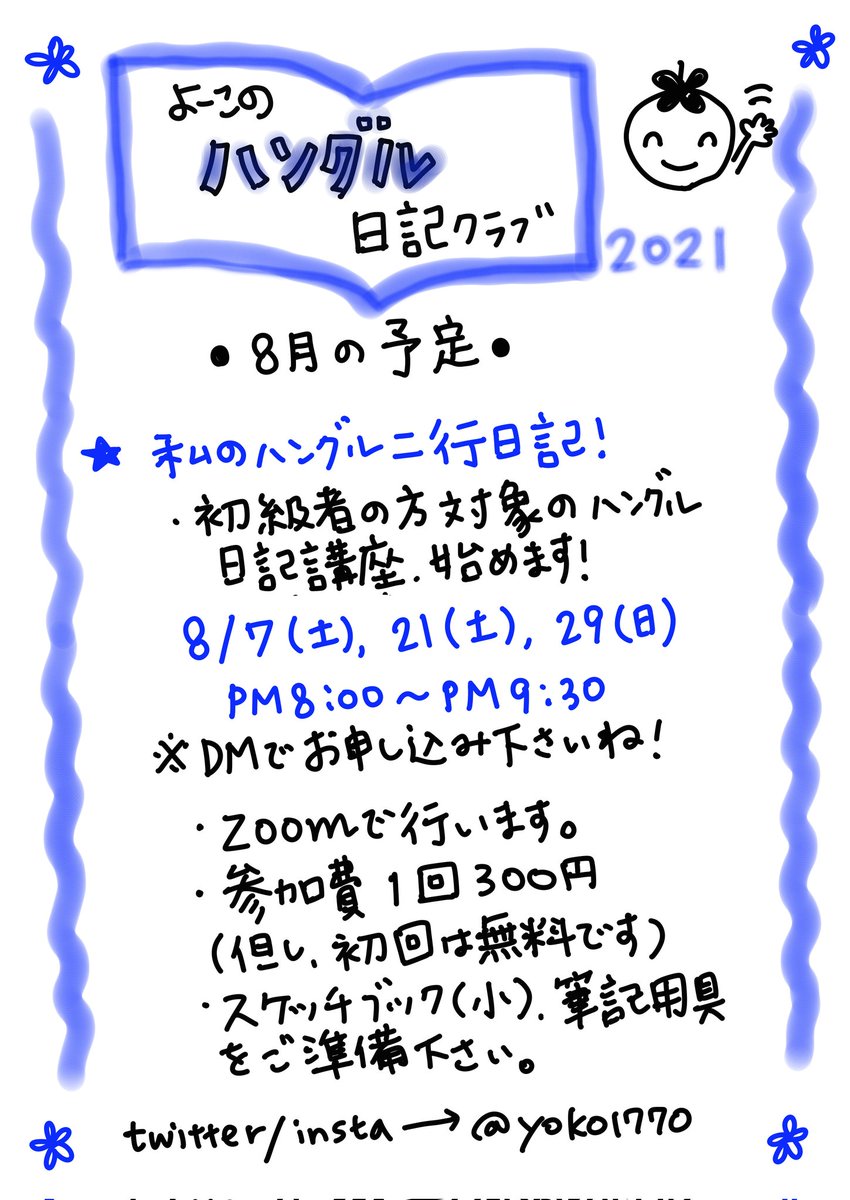 よーこの
ハングル
日記クラブ
2021
•8月の予定•
★ 私のハングル二行日記!
・初級者の方対象のハングル
日記講座、始めます!
8/7(土), 21(土), 29(日)
PM8:00〜PM9:30
※DMでお申し込み下さいね!
・zoomで行います。
・参加費 1回300円
(但し、初回は無料です)
・スケッチブック(小)、筆記用具
をご準備下さい。
twitter/insta→@yoko1770